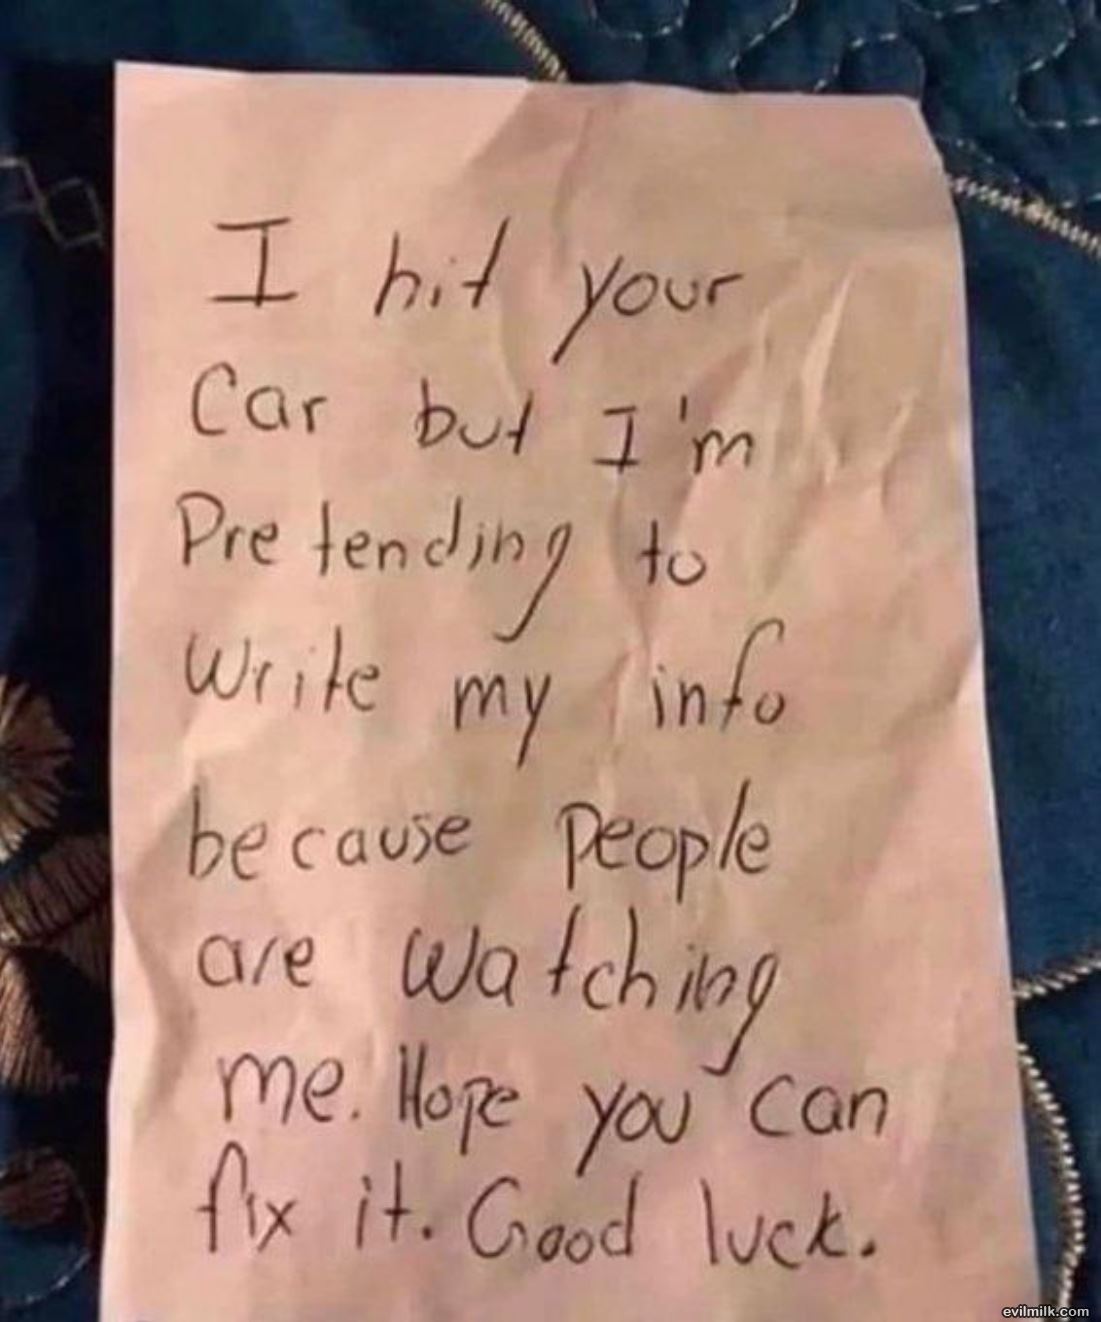 I hit your
Car but I'm
Pretending to
Write my info
because people
are watching
me. Hope you can
fix it. Good luck.
evilmilk.com